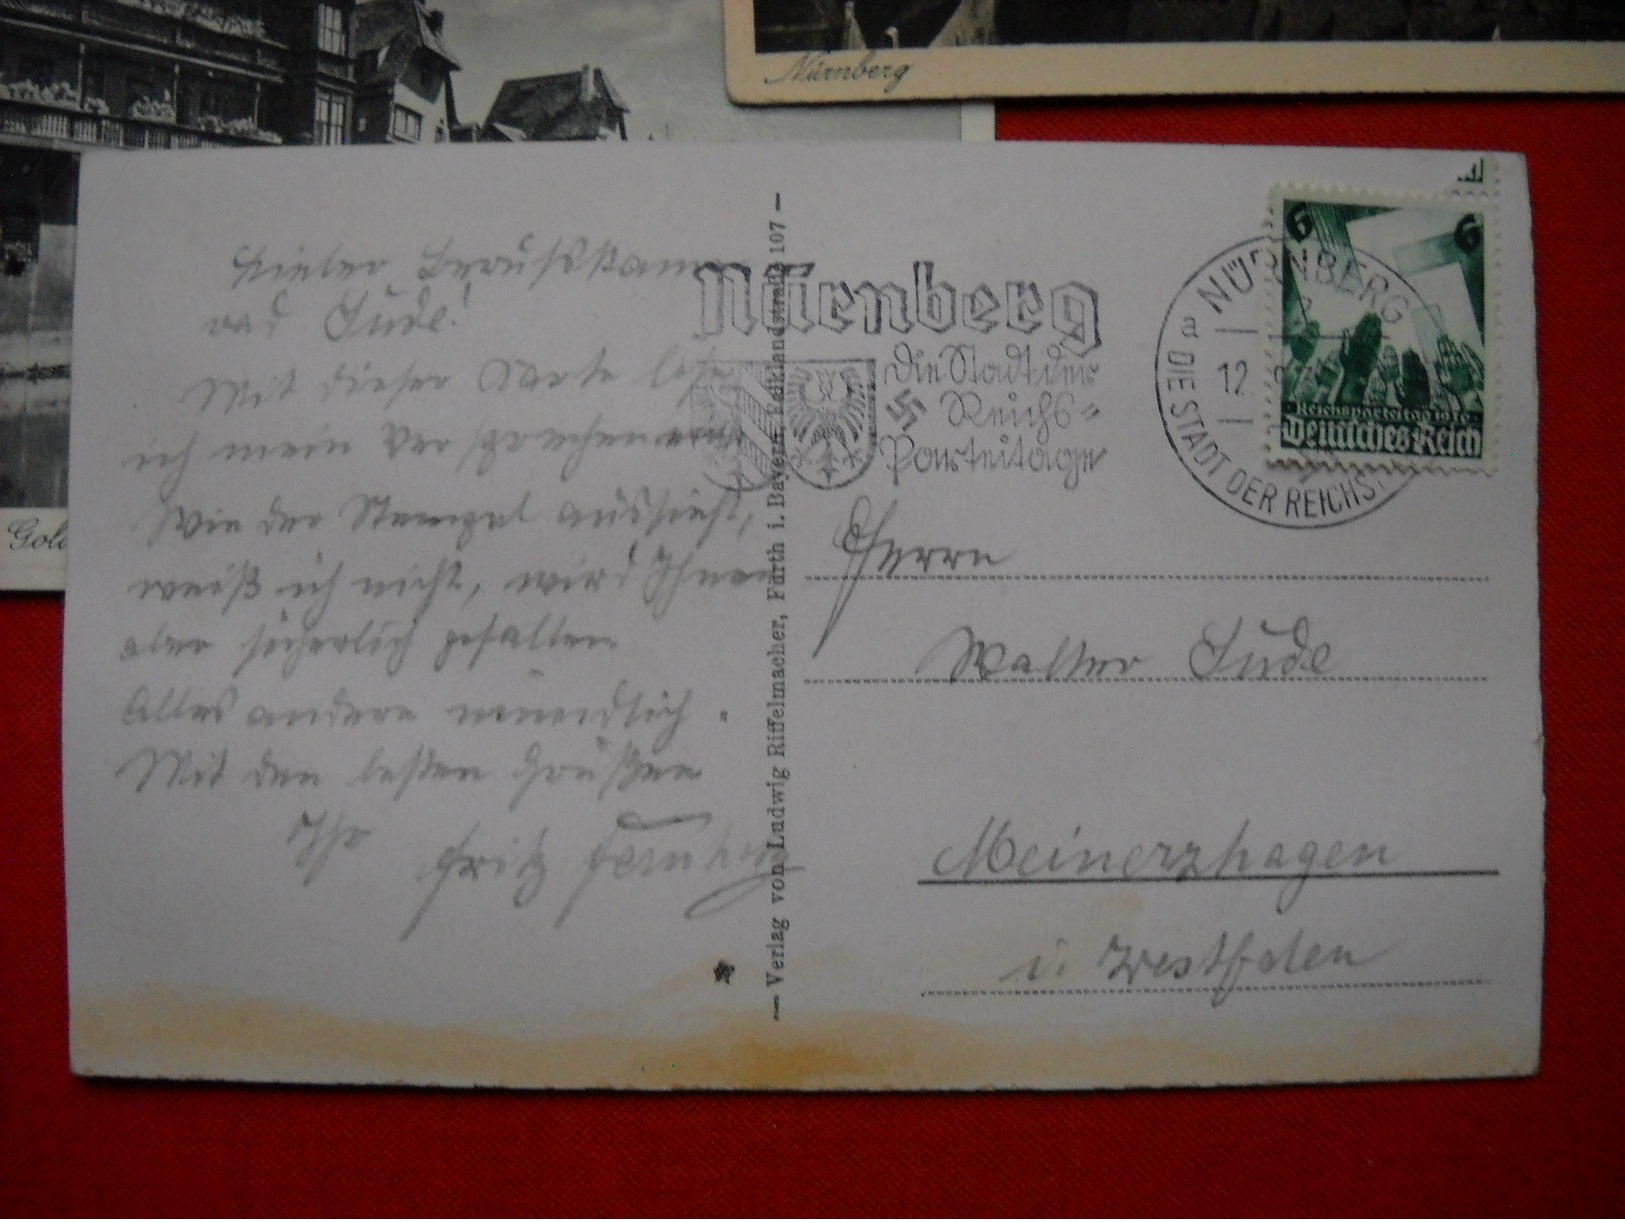 Nürnberg
Gold
Lieber Berufskame-
rad Lüde!
Mit dieser Karte löse
ich mein Versprechen
Wie der Stempel aussieht,
weiß ich nicht, wird Ihnen
aber sicherlich gefallen
Alles andere mündlich.
Mit den besten Grüßen
Ihr Fritz
— Verlag von Ludwig Riffelmacher, Fürth i. Bayern, 107 —
Nürnberg
Die Stadt der
Reichs-
Parteitage
NÜRNBERG
a 12
DIE STADT DER REICHS
6 6
Reichsparteitag 1936
Deutsches Reich
Herrn
Walter Lüde
Meinerzhagen
i. Westfalen